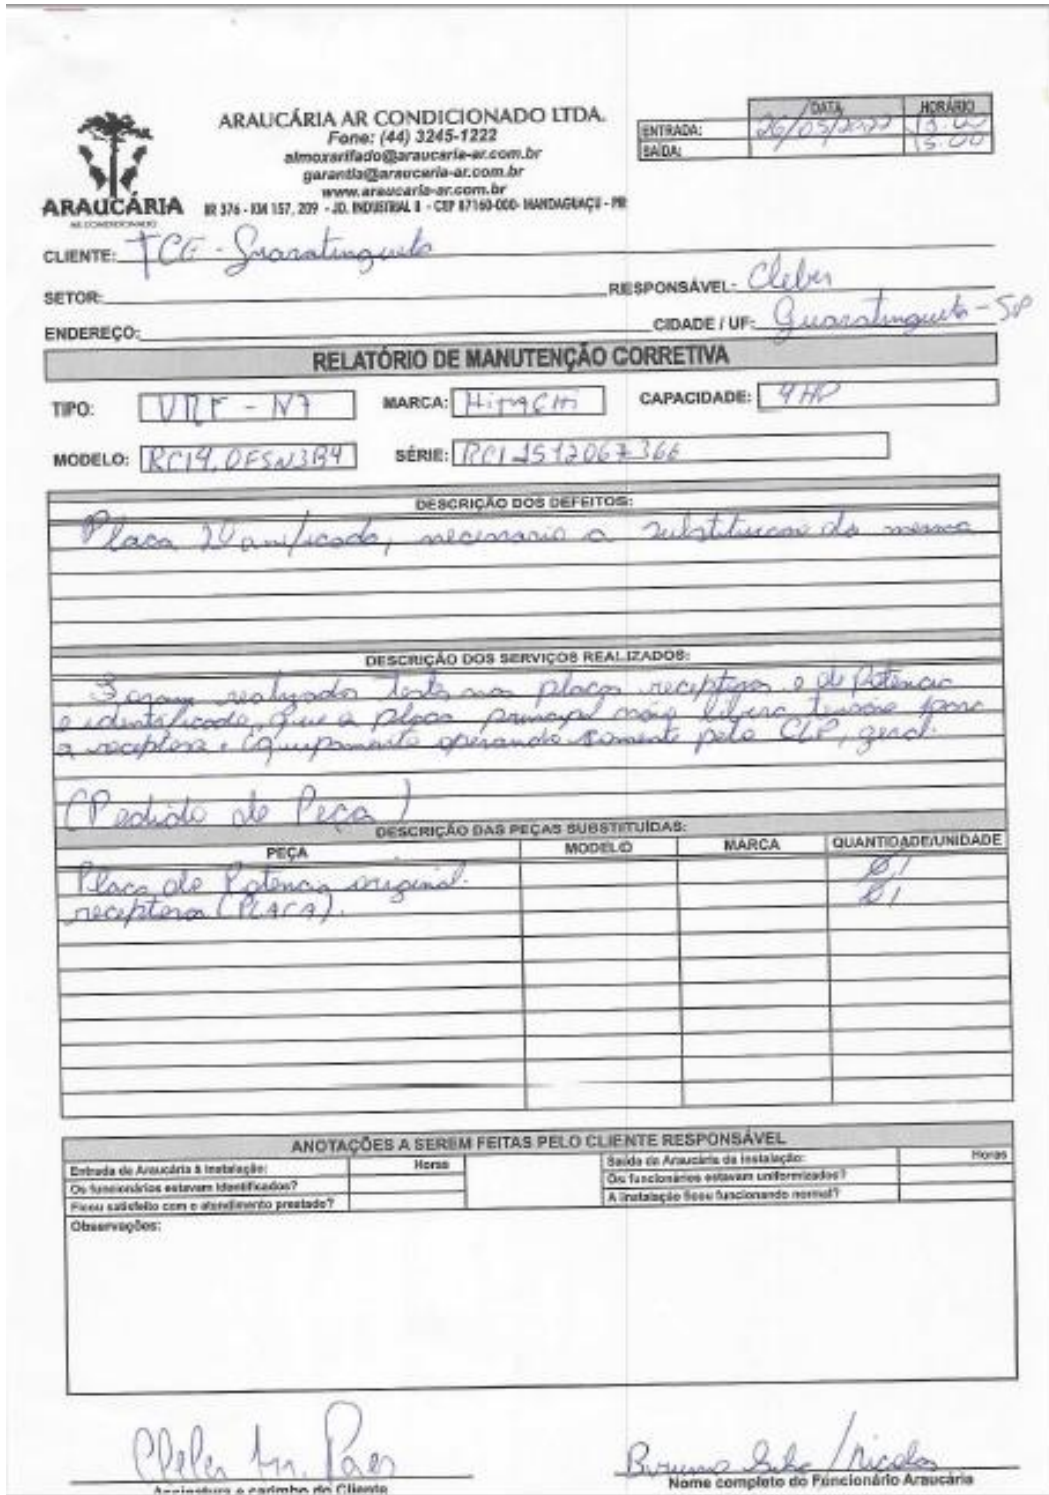 ARAUCÁRIA AR CONDICIONADO LTDA.
Fone: (44) 3245-1222
almoxarifado@araucaria-ar.com.br
garantia@araucaria-ar.com.br
www.araucaria-ar.com.br
BR 376 - KM 157, 209 - JD. INDUSTRIAL II - CEP 87160-000- MANDAGUAÇU - PR
ARAUCÁRIA
AR CONDICIONADO
DATA HORÁRIO
ENTRADA: 26/05/2022 13:00
SAÍDA: 15:00
CLIENTE: TCE - Guaratingueta
SETOR: RESPONSÁVEL: Cleber
ENDEREÇO: CIDADE / UF: Guaratingueta - SP
RELATÓRIO DE MANUTENÇÃO CORRETIVA
TIPO: VRF - N7 MARCA: HITACHI CAPACIDADE: 4 HP
MODELO: RCI4,0FSN3B4 SÉRIE: RCI1512067366
DESCRIÇÃO DOS DEFEITOS:
Placa Danificada, necessario a substituicao da mesma
DESCRIÇÃO DOS SERVIÇOS REALIZADOS:
Foram realizado teste nas placas receptora e de Potencia
e identificado, que a placa principal não libera tensão para
a receptora. Equipamento operando somente pelo CLP, geral.
(Pedido de Peça)
DESCRIÇÃO DAS PEÇAS SUBSTITUÍDAS:
PEÇA MODELO MARCA QUANTIDADE/UNIDADE
Placa de Potencia original. 01
receptora (PLACA). 01
ANOTAÇÕES A SEREM FEITAS PELO CLIENTE RESPONSÁVEL
Entrada de Araucária à Instalação: Horas Saída da Araucária da Instalação: Horas
Os funcionários estavam identificados? Os funcionários estavam uniformizados?
Ficou satisfeito com o atendimento prestado? A Instalação ficou funcionando normal?
Observações:
Cleber Paes
Bruno /Nicolas
Assinatura e carimbo do Cliente Nome completo do Funcionário Araucária